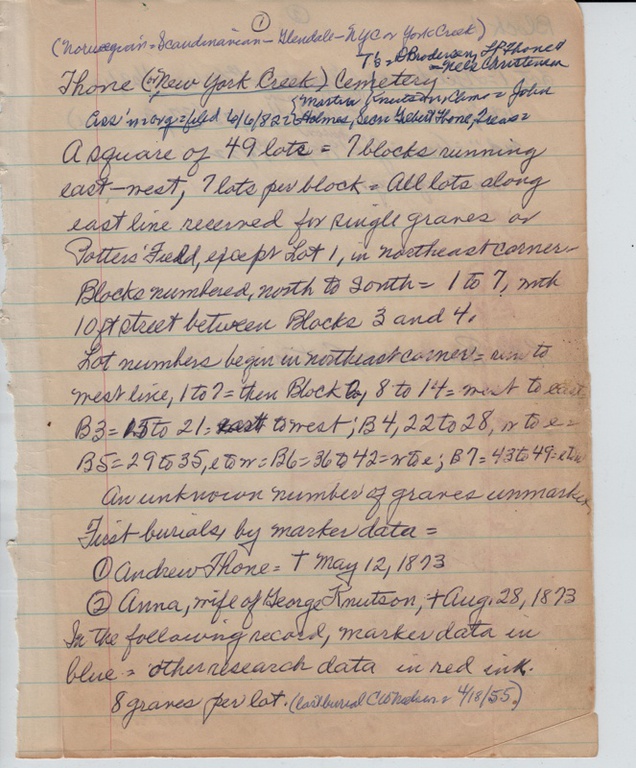 ①
(Norwegian = Scandinavian - Glendale - NYC or York Creek)
Ts = O Brodersen, LP Thone &
= Nels Christensen
Thone (or New York Creek) Cemetery
{Martin Knutson, Chmn = John
Ass'n org = filed 6/6/82 = Holmes, Secn Gebert Thone, Treas =
A square of 49 lots = 7 blocks running
east-west, 7 lots per block = All lots along
east line reserved for single graves or
Potters' Field, except Lot 1, in northeast corner -
Blocks numbered, north to South = 1 to 7, with
10 ft street between Blocks 3 and 4.
Lot numbers begin in northeast corner = run to
west line, 1 to 7 = then Block 2, 8 to 14 = west to east
B3 = 15 to 21 = east to west; B4, 22 to 28, w to e =
B5 = 29 to 35, e to w = B6 = 36 to 42 = w to e; B7 = 43 to 49 = e to w
An unknown number of graves unmarked
First burials, by marker data =
① Andrew Thone = † May 12, 1873
② Anna, wife of George Knutson, † Aug. 28, 1873
In the following record, marker data in
blue = other research data in red ink.
8 graves per lot. (last burial = 4/18/55.)